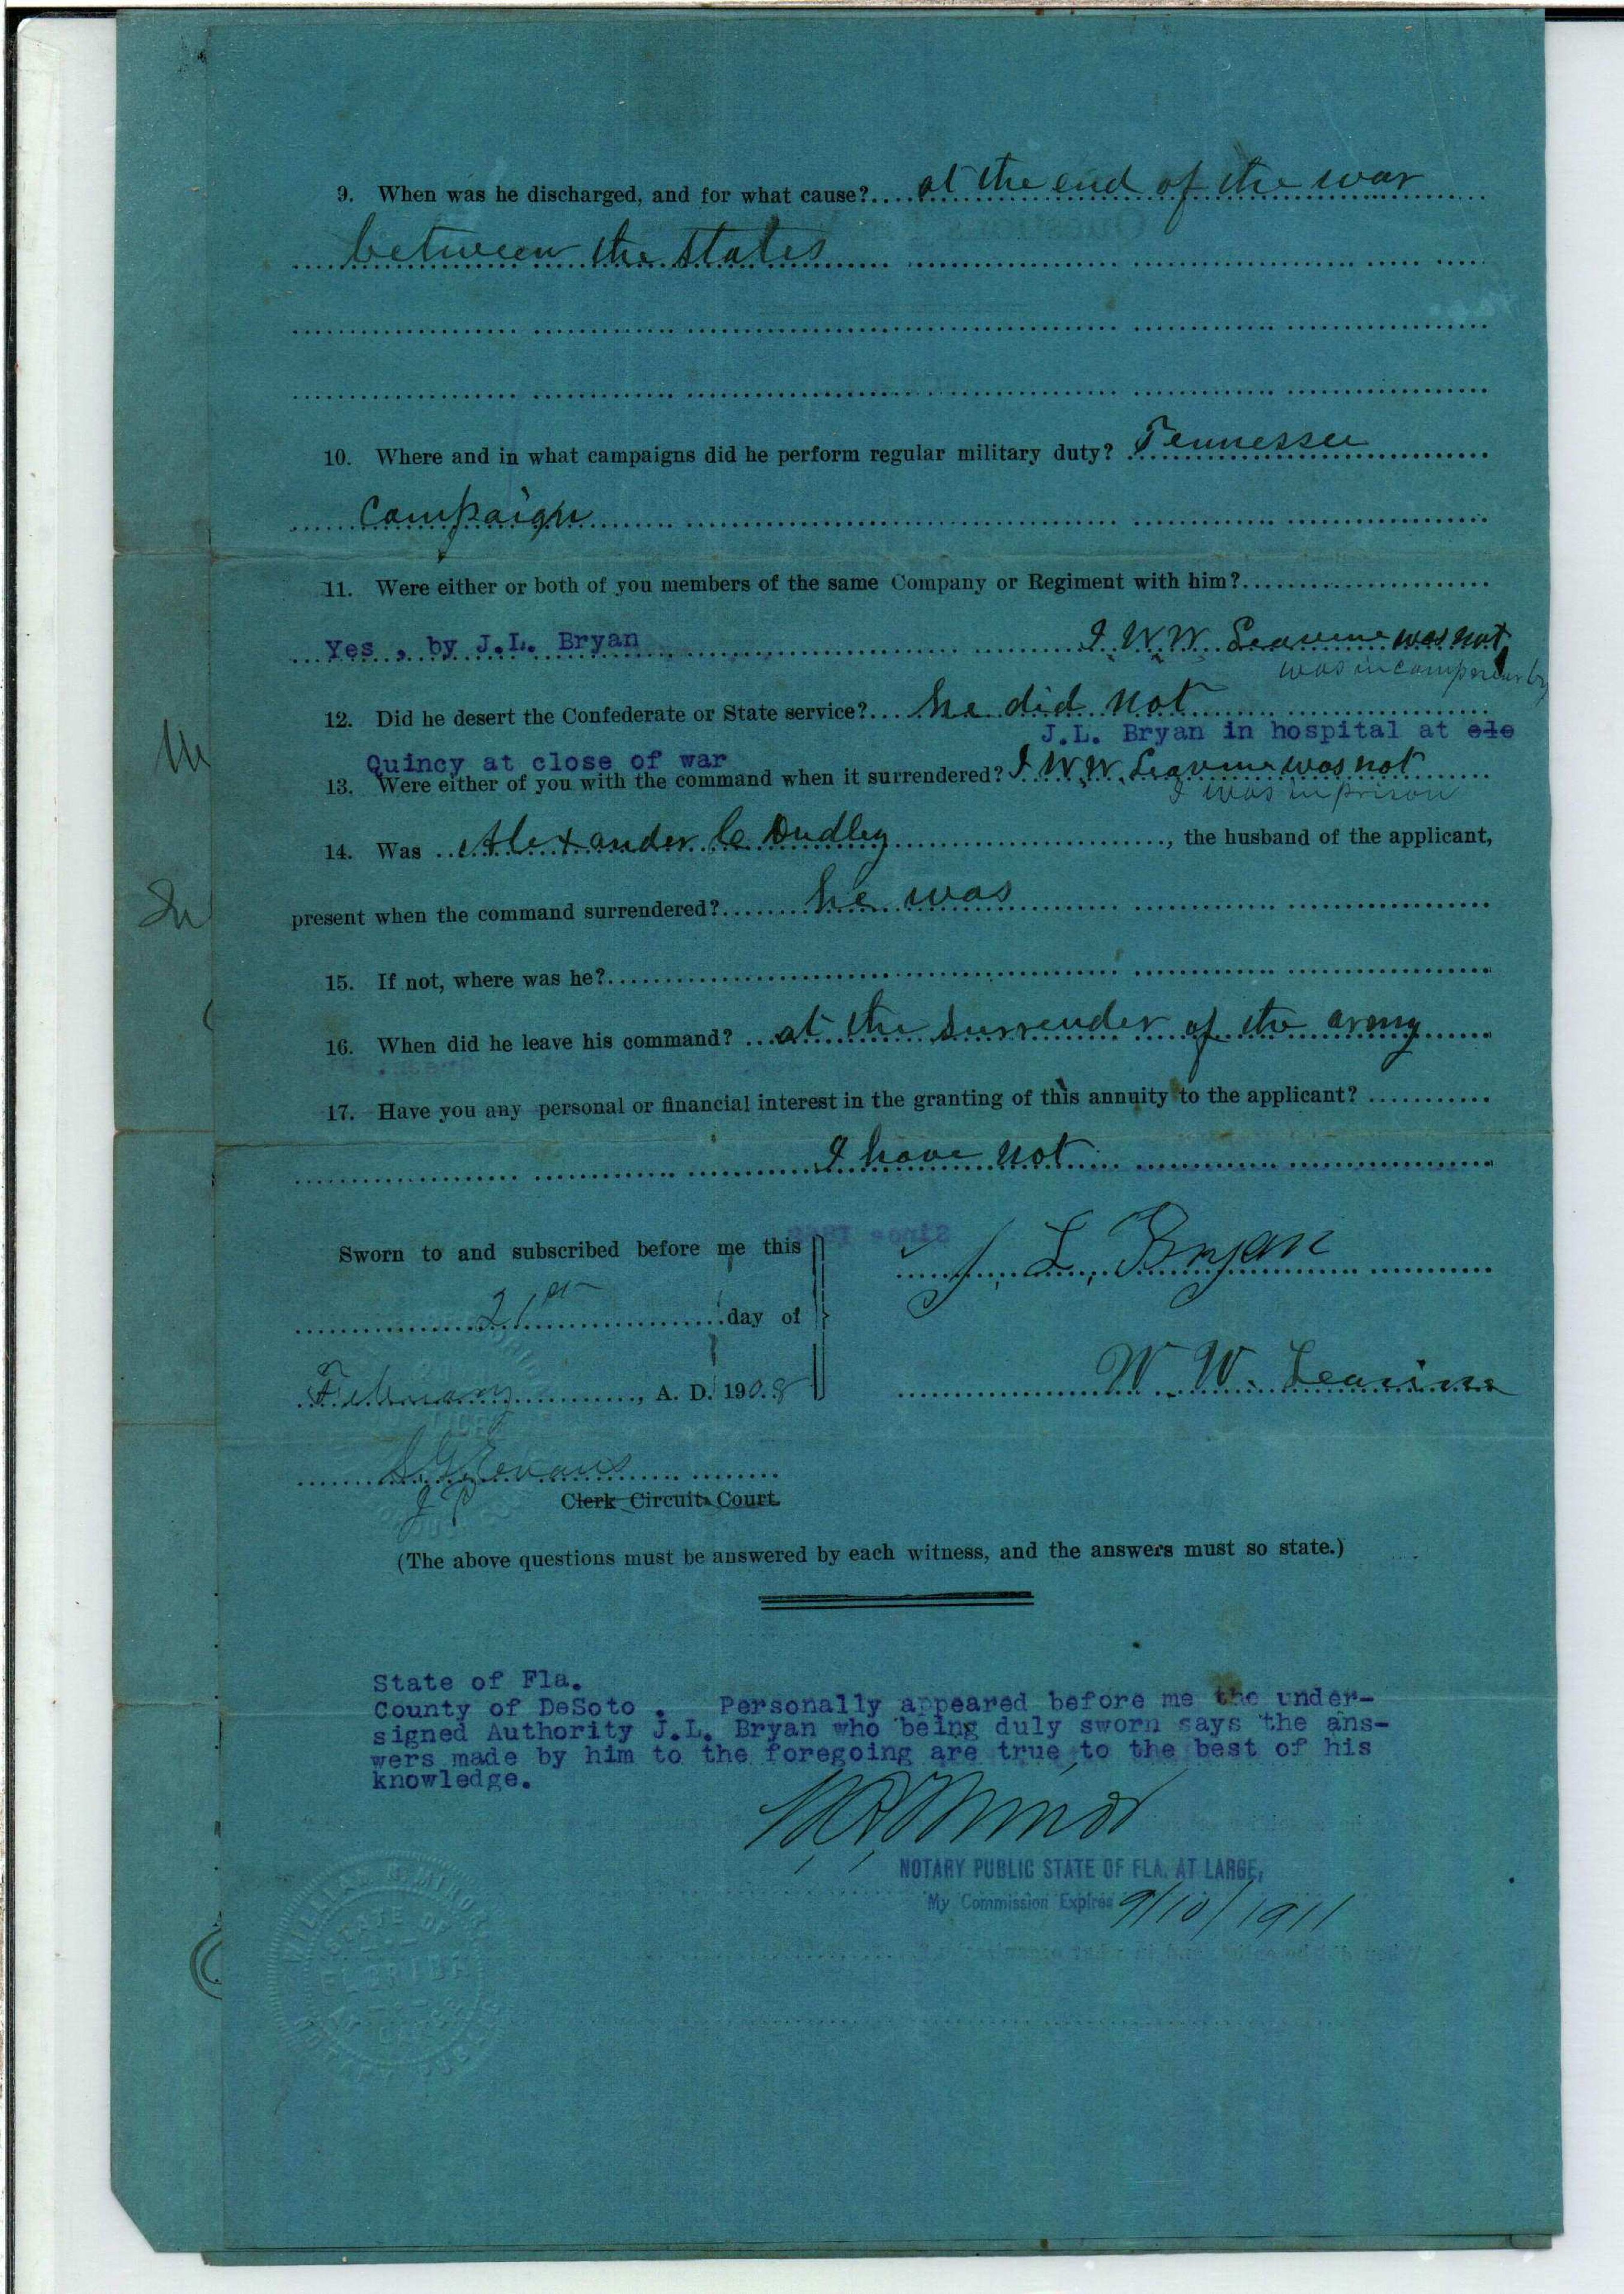 9. When was he discharged, and for what cause? at the end of the war
between the States
10. Where and in what campaigns did he perform regular military duty? Tennessee
Campaign
11. Were either or both of you members of the same Company or Regiment with him?
Yes , by J.L. Bryan I W.W. was not
was in camp
12. Did he desert the Confederate or State service? he did not
J.L. Bryan in hospital at clo
Quincy at close of war
13. Were either of you with the command when it surrendered? I W.W. was not
I was in prison
14. Was Alexander C Dudley, the husband of the applicant,
present when the command surrendered? he was
15. If not, where was he?
16. When did he leave his command? at the surrender of the army
17. Have you any personal or financial interest in the granting of this annuity to the applicant?
I have not
Sworn to and subscribed before me this
J. L. Bryan
21st day of
February, A. D. 1908
W. W.
Evans
J P Clerk Circuit Court.
(The above questions must be answered by each witness, and the answers must so state.)
State of Fla.
County of DeSoto . Personally appeared before me the under-
signed Authority J.L. Bryan who being duly sworn says the ans-
wers made by him to the foregoing are true to the best of his
knowledge.
Minor
NOTARY PUBLIC STATE OF FLA. AT LARGE,
My Commission Expires 9/10/1911
STATE OF
FLORIDA
AT LARGE
NOTARY PUBLIC